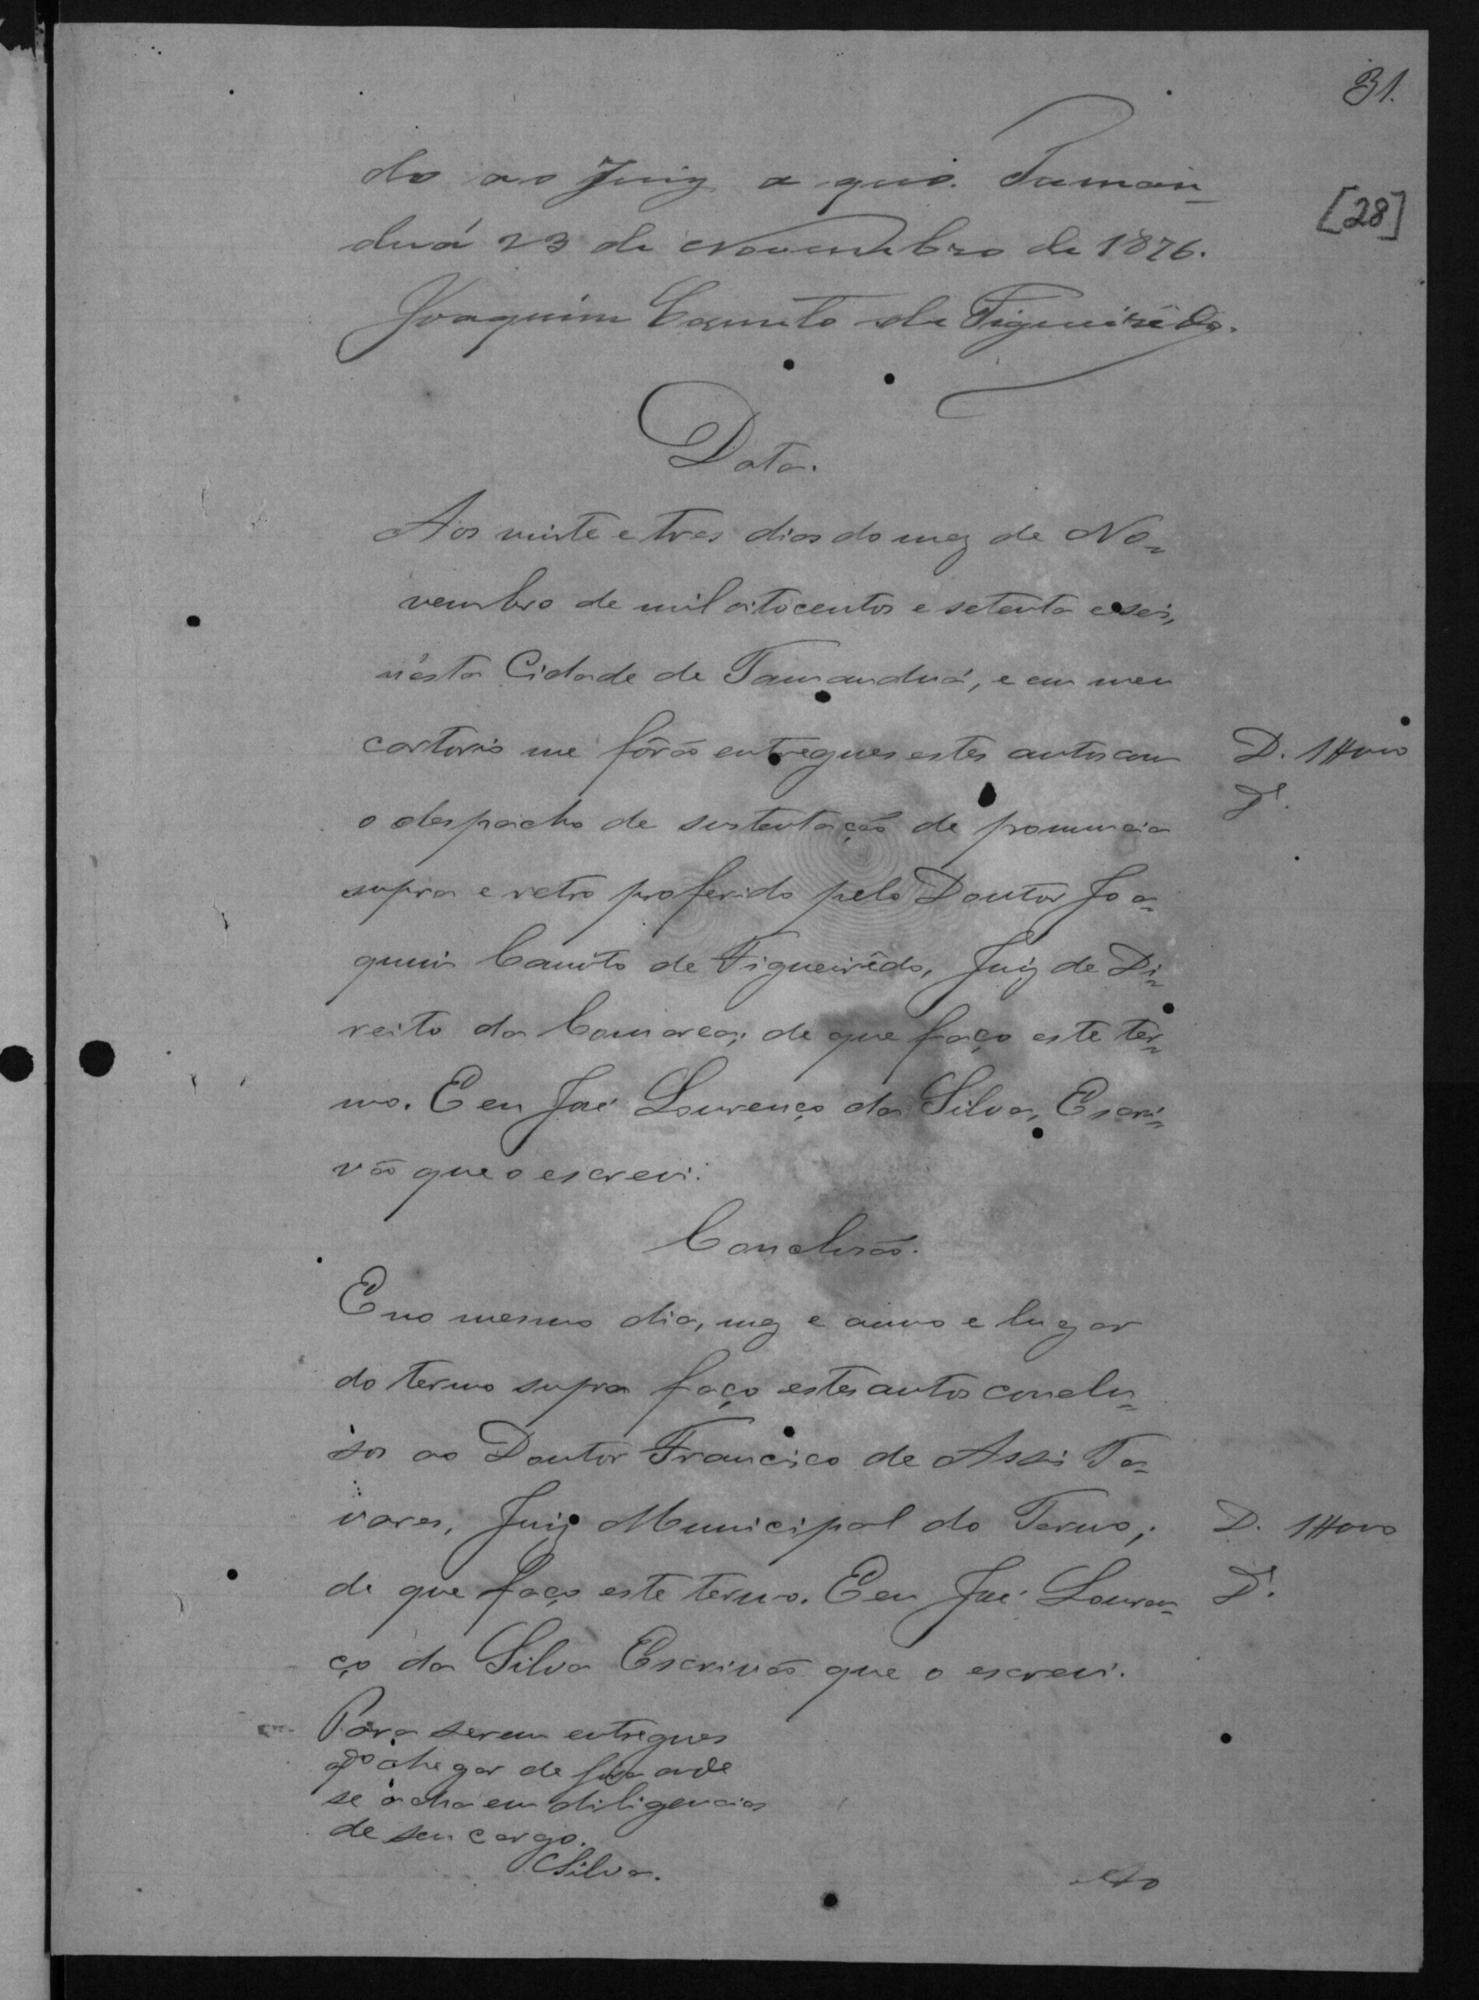 31.
[28]
do ao Juiz a quo. Taman-
duá 23 de Novembro de 1876.
Joaquim Canuto de Figueirêdo.
Data.
Aos vinte e tres dias do mez de No-
vembro de mil oitocentos e setenta e seis,
n'esta Cidade de Tamanduá, e em meu
cartorio me fôrão entregues estes autos com
D.
o despacho de sustentação de pronuncia
supra e retro proferido pelo Doutor Joa-
quim Canuto de Figueirêdo, Juiz de Di-
reito da Comarca; de que faço este ter-
mo. E eu José Lourenço da Silva, Escri-
vão que o escrevi.
Conclusão.
E no mesmo dia, mez e anno e lugar
do termo supra faço estes autos conclu-
sos ao Doutor Francisco de Assis Ta-
vares, Juiz Municipal do Termo;
D.
de que faço este termo. E eu José Louren-
ço da Silva Escrivão que o escrevi.
Para serem entregues
qdo chegar de fóra onde
se acha em diligencias
de seu cargo.
Silva.